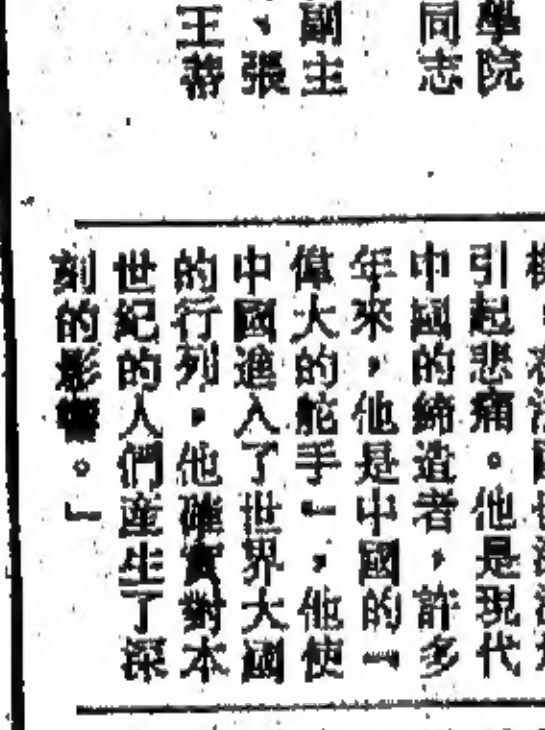 學院
同志
副主
，張
王蒂
引起悲痛。他是現代
中國的締造者，許多
年來，他是中國的「
偉大的舵手」，他使
中國進入了世界大國
的行列，他確實對本
世紀的人們產生了深
刻的影響。」